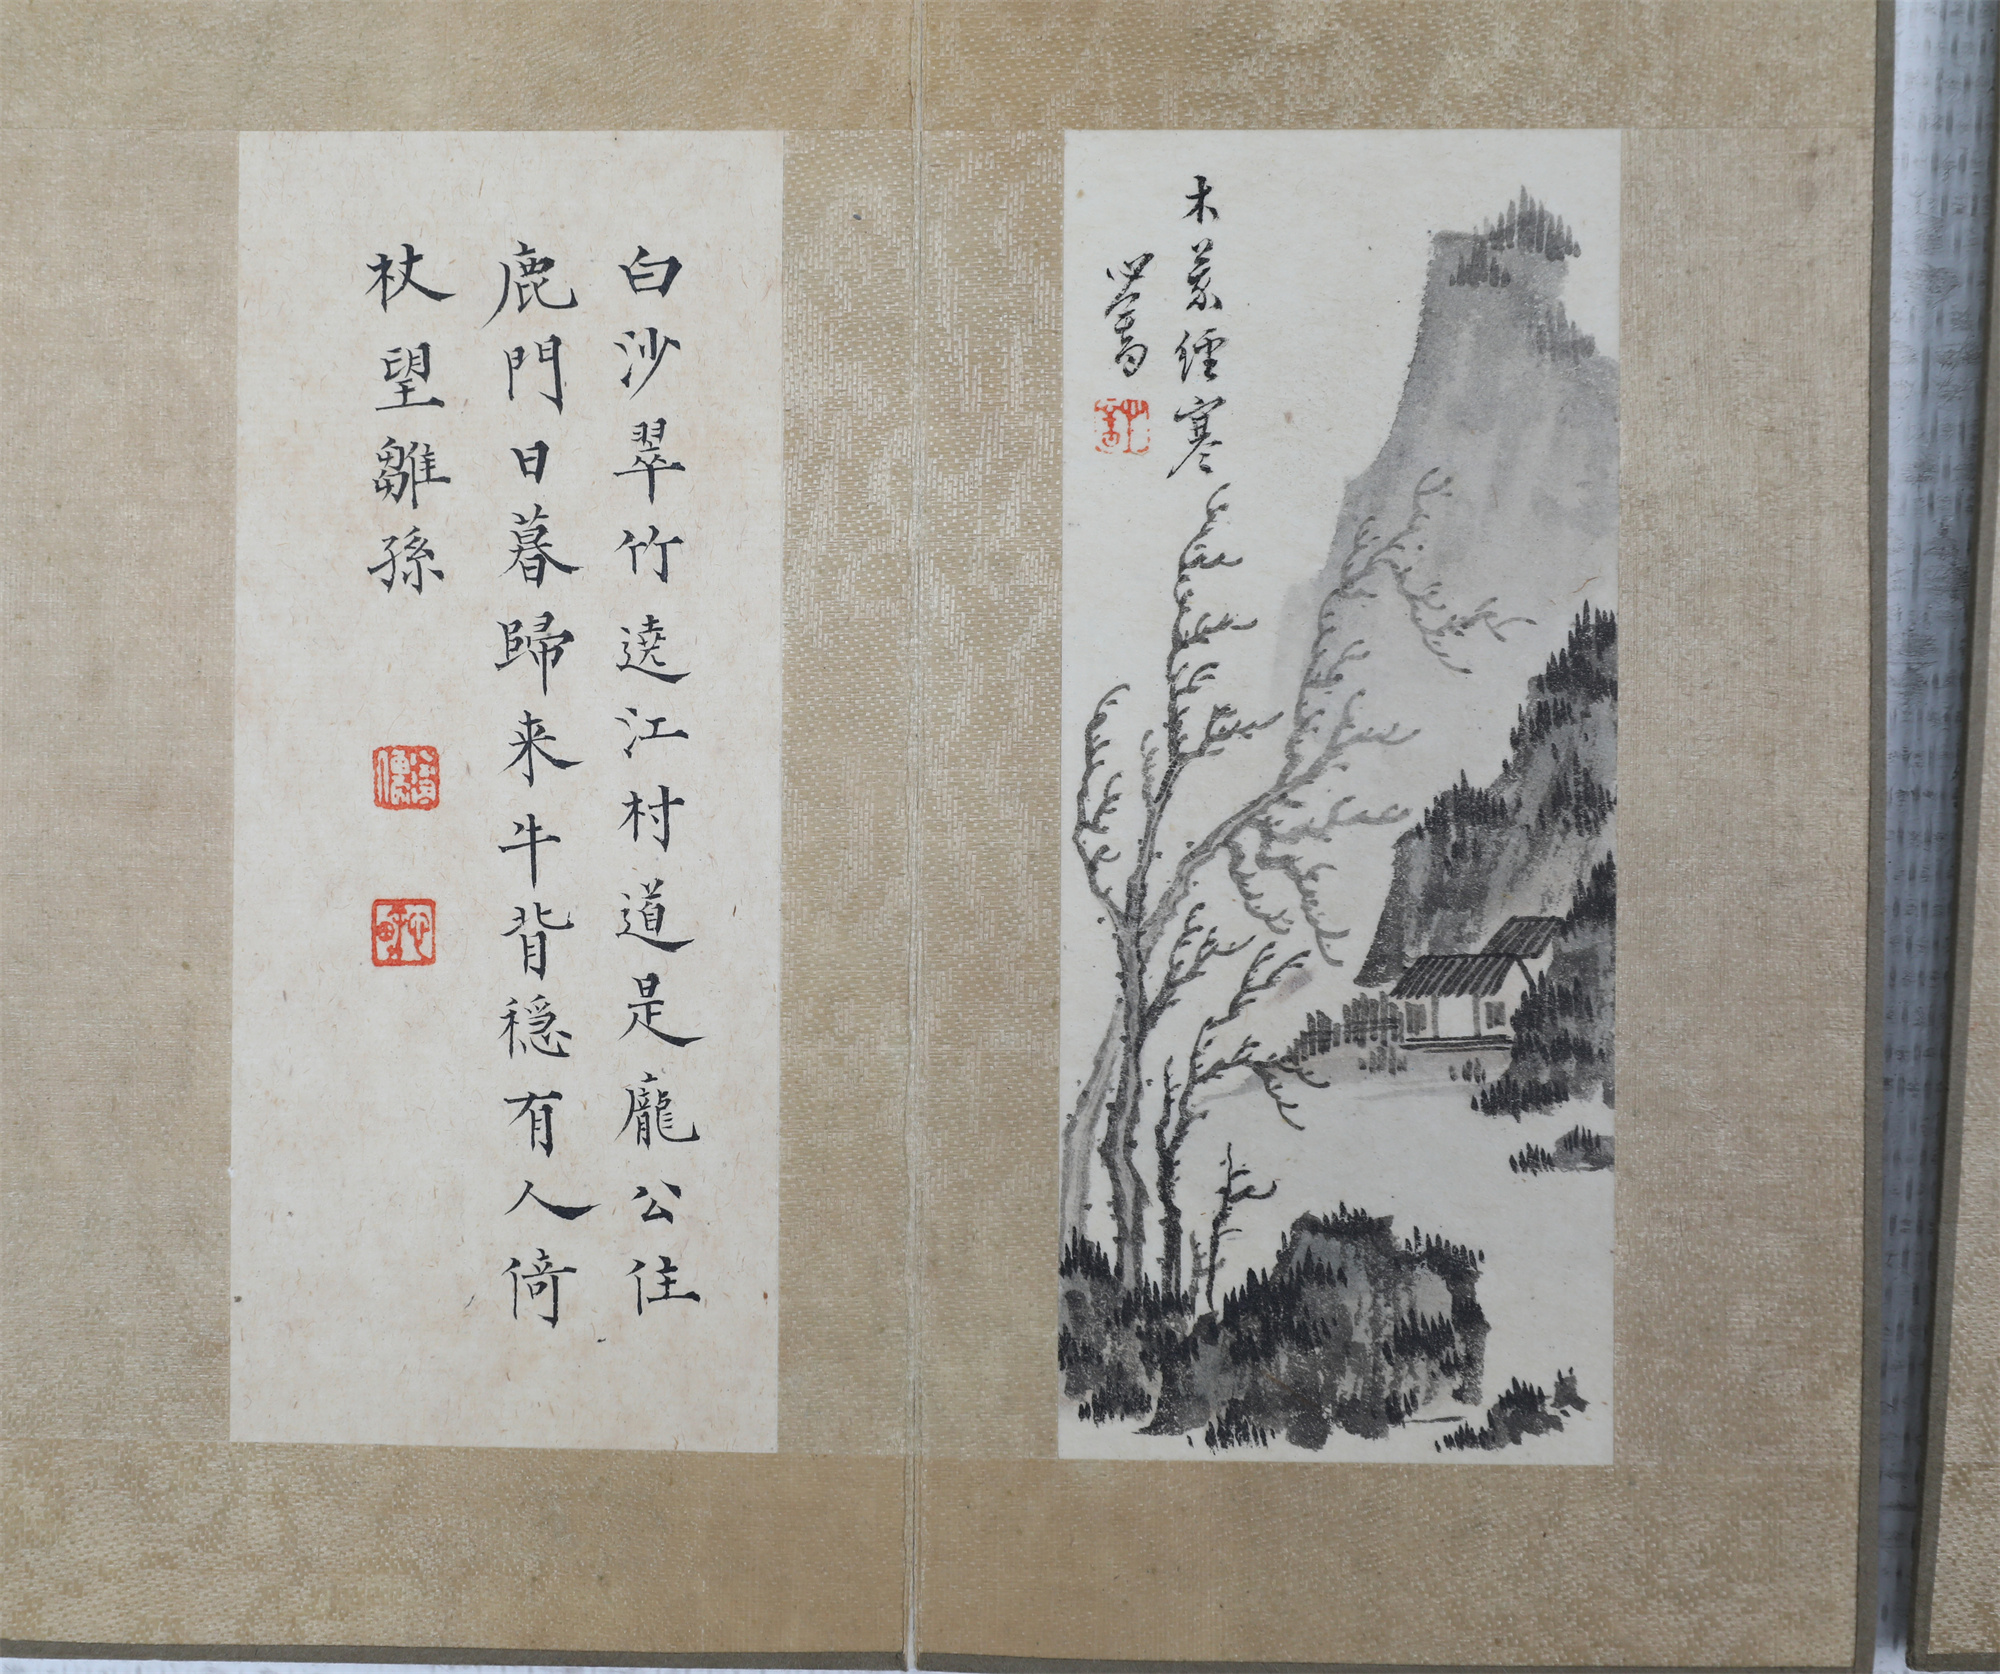 木葉經寒
心畬
白沙翠竹遶江村道是龐公住
鹿門日暮歸来牛背穏有人倚
杖望雛孫